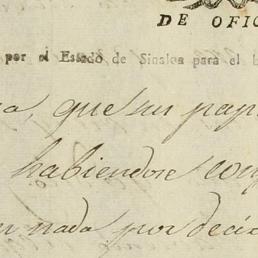 DE OFIC
por el Estado de Sinaloa para el b
a, que sus pape
habiendose com
nada por decir